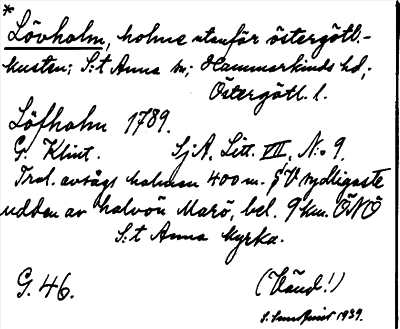 *
Lövholm, holme utanför östergötl.-
kusten; S:t Anna sn; Hammarkinds hd;
Östergötl. l.
Löfholm 1789.
G. Klint. SjA. Litt. VII, N:o 9.
Trol. avsågs holmen 400 m. SV sydligaste
udden av halvön Marö, bel. 9 km. ÖNÖ
S:t Anna kyrka.
G. 46.
(Vänd!)
1939.